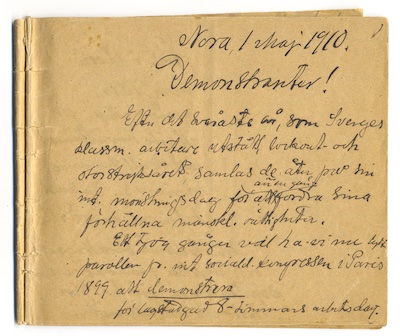 Nora, 1 Maj 1910.
Demonstranter!
Efter det svåraste år, som Sveriges
klassm. arbetare utstått, lockout- och
storstrejksåret samlas de åter på sin
int. mönstringsdag för att
ännu en gång
fordra sina
förhållna mänskl. rättigheter.
Ett tjog gånger väl ha vi nu
parollen fr. int. sociald. kongressen i Paris
1899 att demonstrera
för lagstadgad 8-timmars arbetsdag.